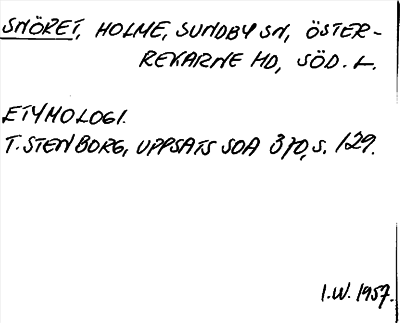 SNÖRET, HOLME, SUNDBY SN, ÖSTER-
REKARNE HD, SÖD. L.
ETYMOLOGI.
T. STENBORG, UPPSATS SOA 370, S. 129.
I.W. 1957.